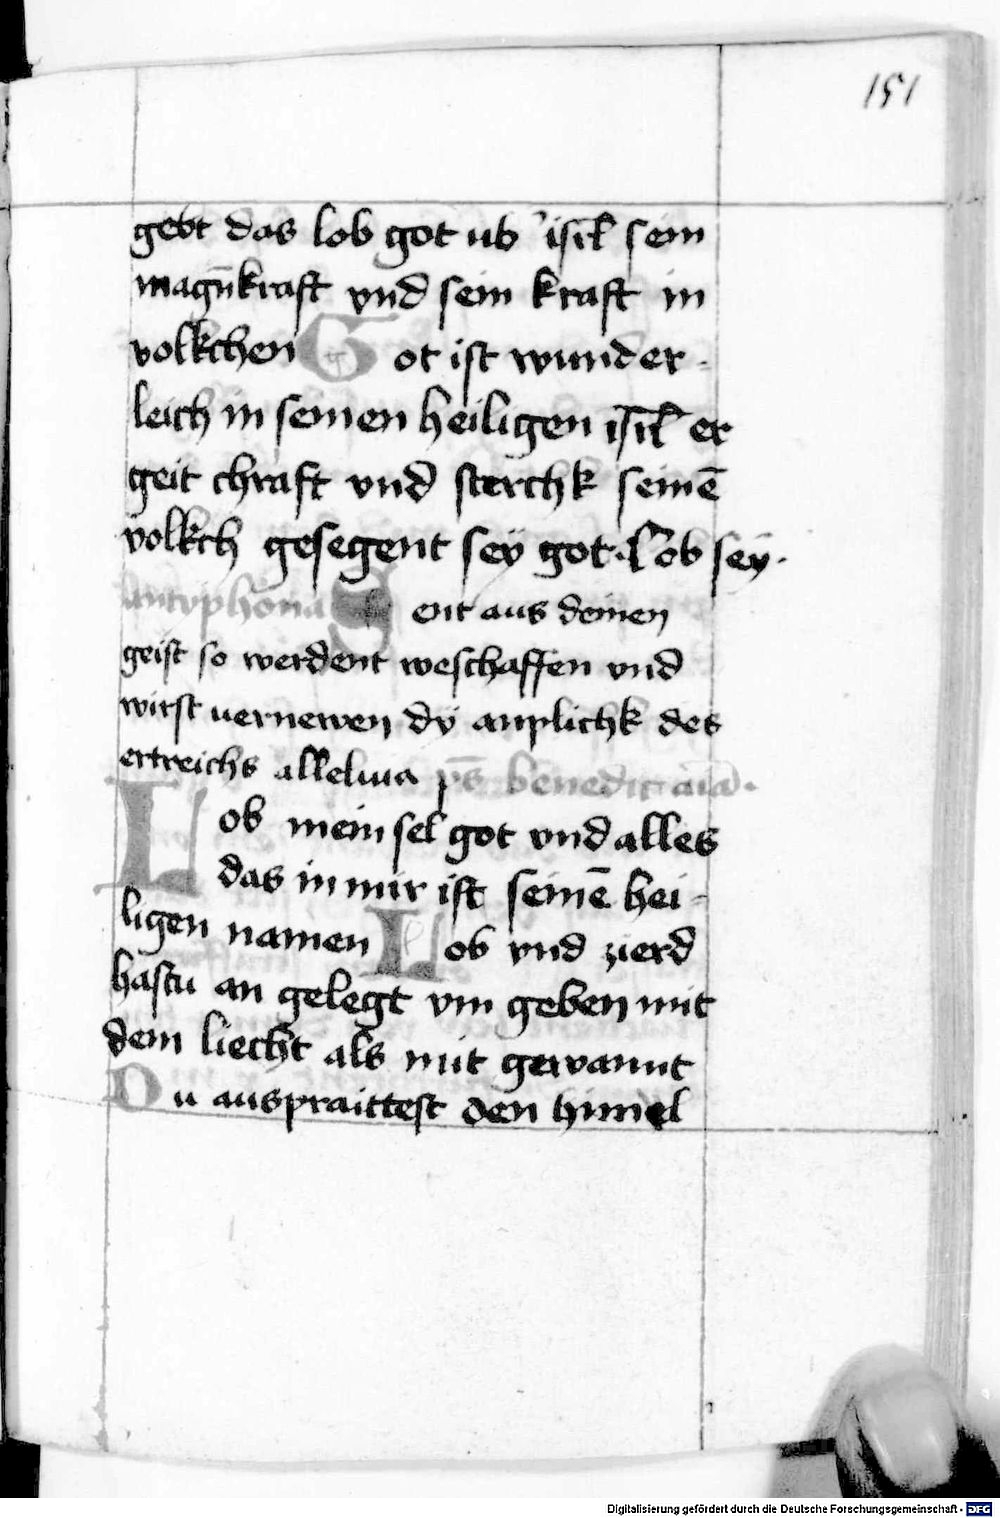 151
gebt das lob got ub' isrl sein
magn̄kraft vnd sein kraft in
volkchen Got ist wunder-
leich in seinen heiligen isrl er
geit chraft vnd sterchk seinē
volkch gesegent sey got. Lob sey.
antyphona Sent aus deinen
geist so werdent weschaffen vnd
wirst uernewen dÿ anplichk des
ertreichs alleluia ps benedic aīa.
Lob mein sel got vnd alles
das in mir ist seinē hei-
ligen namen Lob vnd zierd
hastu an gelegt vm geben mit
dem liecht als mit gewannt
Du auspraittest den himel
Digitalisierung gefördert durch die Deutsche Forschungsgemeinschaft - DFG